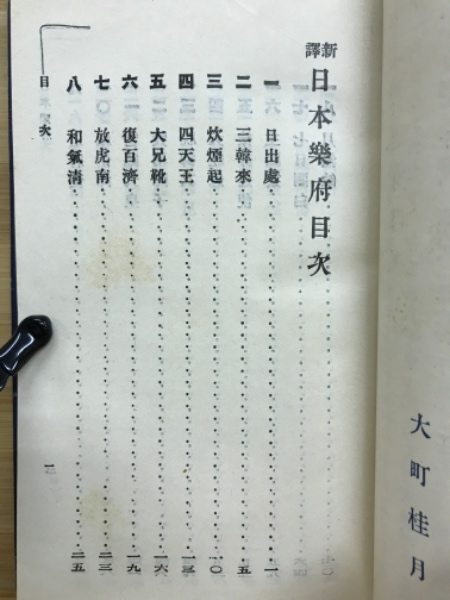 大町桂月
新譯 日本樂府目次
一 日出處 一
二 三韓來 五
三 炊煙起 一〇
四 四天王 一三
五 大兄靴 一六
六 復百濟 一九
七 放虎南 二三
八 和氣清 二五
目次
一